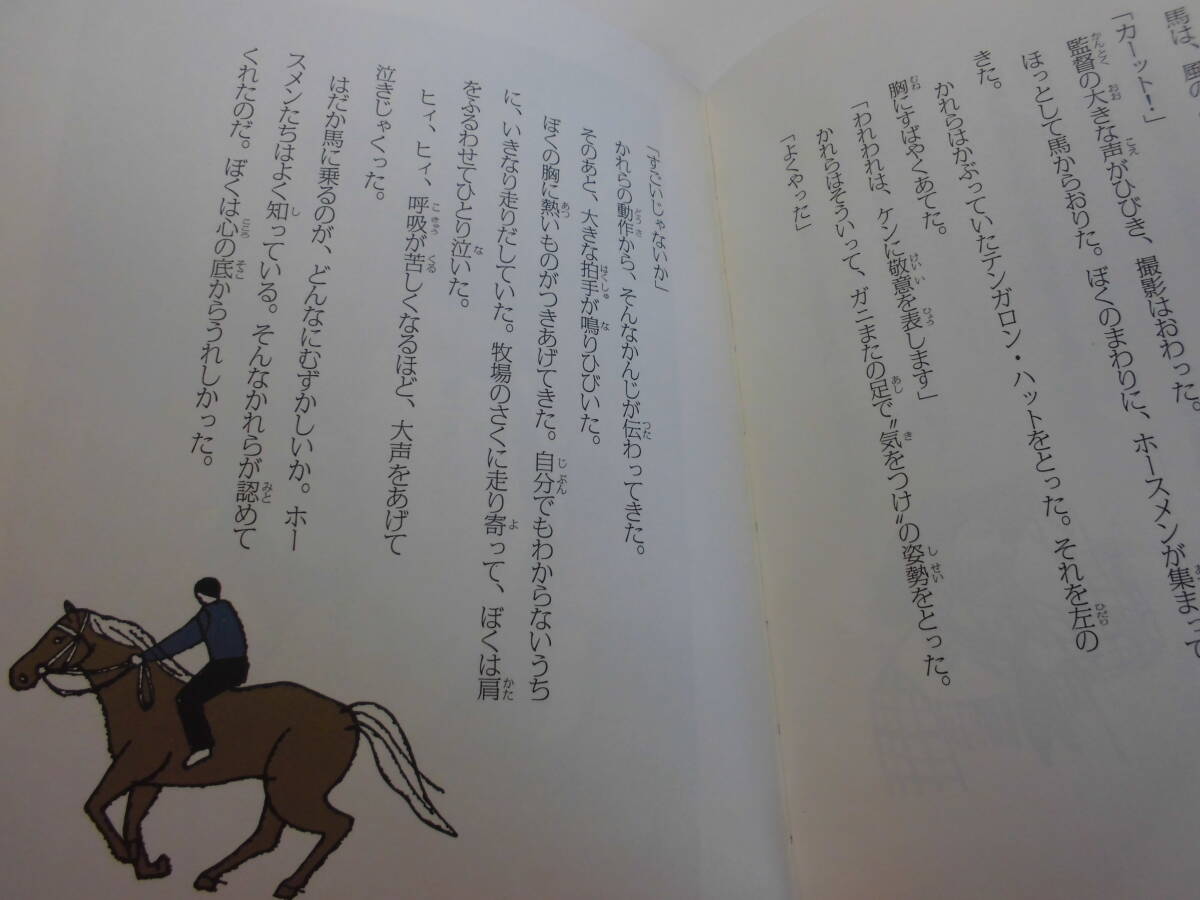 馬は、風の
「カーット!」
監督の大きな声がひびき、撮影はおわった。
ほっとして馬からおりた。ぼくのまわりに、ホースメンが集まって
きた。
かれらはかぶっていたテンガロン・ハットをとった。それを左の
胸にすばやくあてた。
「われわれは、ケンに敬意を表します」
かれらはそういって、ガニまたの足で〝気をつけ〟の姿勢をとった。
「よくやった」
「すごいじゃないか」
かれらの動作から、そんなかんじが伝わってきた。
そのあと、大きな拍手が鳴りひびいた。
ぼくの胸に熱いものがつきあげてきた。自分でもわからないうち
に、いきなり走りだしていた。牧場のさくに走り寄って、ぼくは肩
をふるわせてひとり泣いた。
ヒィ、ヒィ、呼吸が苦しくなるほど、大声をあげて
泣きじゃくった。
はだか馬に乗るのが、どんなにむずかしいか。ホー
スメンたちはよく知っている。そんなかれらが認めて
くれたのだ。ぼくは心の底からうれしかった。